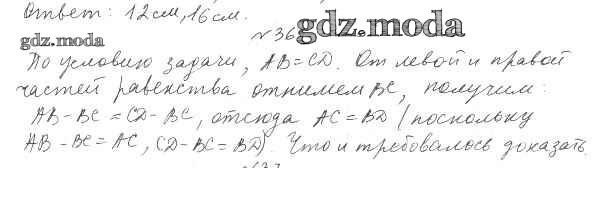 Ответ: 12см, 16см.
№36 gdz.moda
gdz.moda
По условию задачи, AB=CD. От левой и правой
частей равенства отнимем BC, получим:
AB-BC=CD-BC, отсюда AC=BD (поскольку
AB-BC=AC, CD-BC=BD). Что и требовалось доказать.